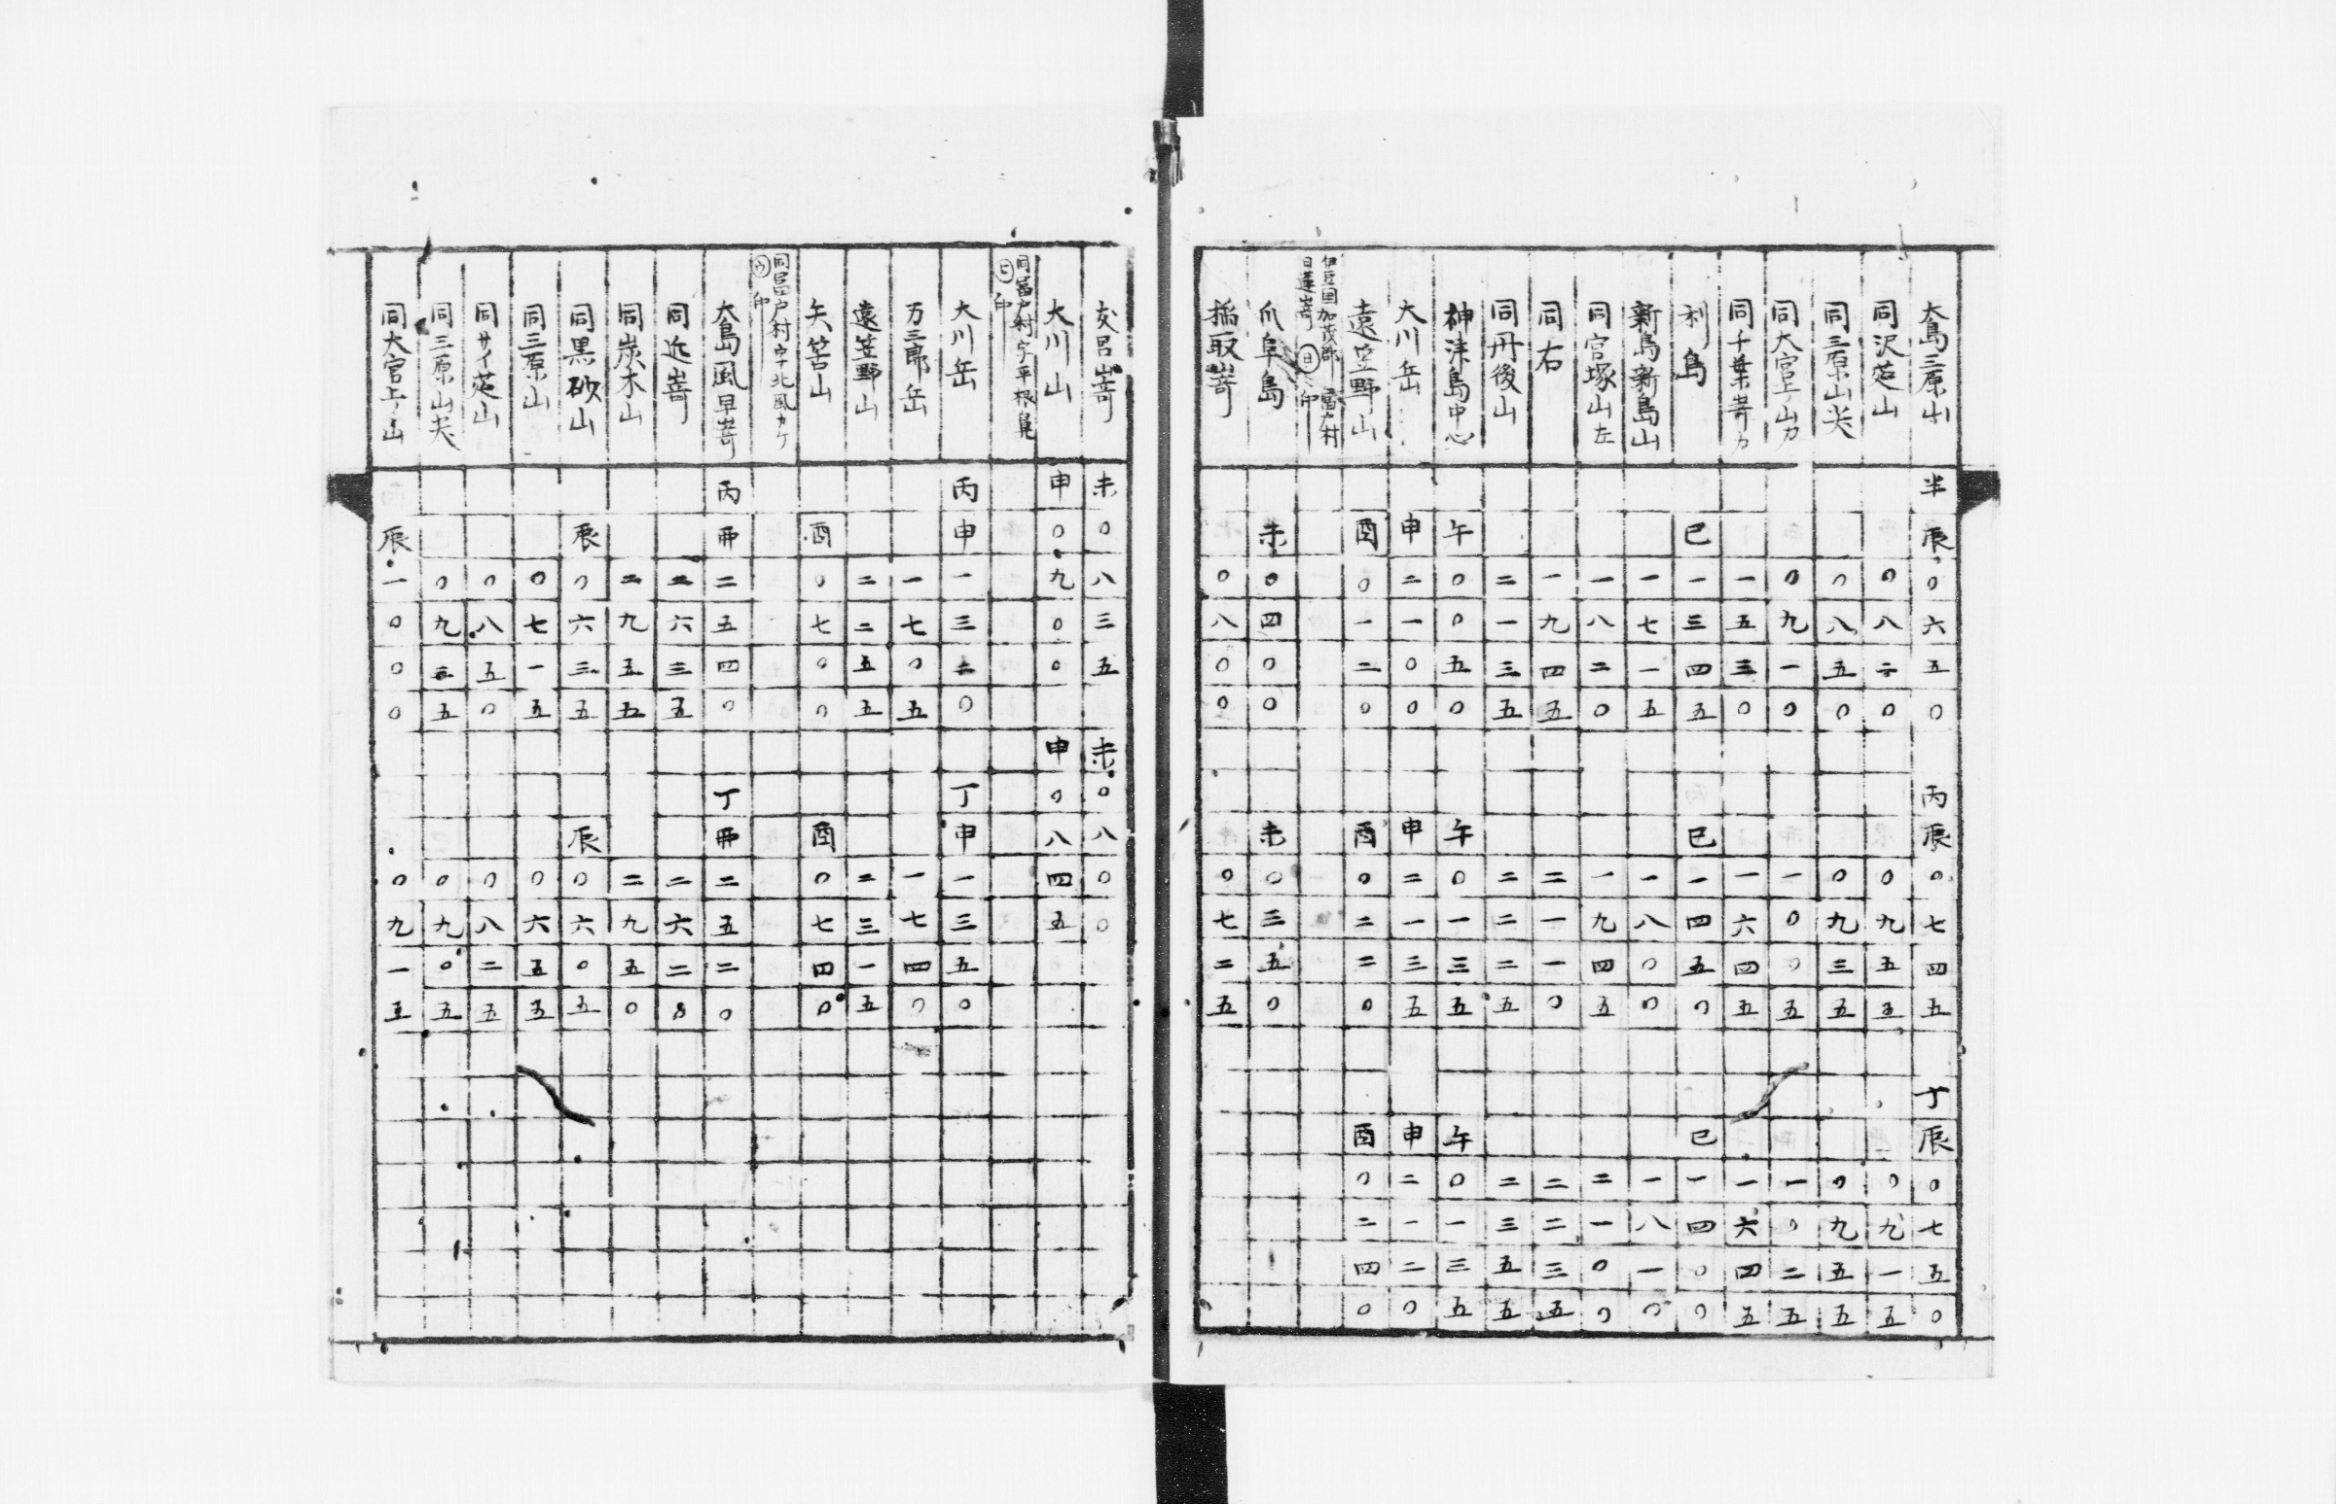 大島三原山 半辰〇六五〇 丙辰〇七四五 丁辰〇七五〇
同沢莚山 〇八二〇 〇九五五 〇九一五
同三原山尖 〇八五〇 〇九三五 〇九五五
同大宮上山カ 〇九一〇 一〇〇五 一〇二五
同千葉嵜カ 一五三〇 一六四五 一六四五
利島 巳一三四五 巳一四五〇 巳一四〇〇
新島新島山 一七一五 一八〇〇 一八一〇
同宮塚山左 一八二〇 一九四五 二一〇〇
同右 一九四五 二一一〇 二二三五
同丹後山 二一三五 二二二五 二三五五
神津島中心 午〇〇五〇 午〇一三五 午〇一三五
大川岳 申二一〇〇 申二一三五 申二一二〇
遠笠野山 酉〇一二〇 酉〇二二〇 酉〇二四〇
伊豆国加茂郡 富戸村
日蓮嵜 ㊐印
爪阜島 未〇四〇〇 未〇三五〇
稲取嵜 〇八〇〇 〇七二五
友呂嵜 未〇八三五 未〇八〇〇
大川山 申〇九〇〇 申〇八四五
同富戸村字平根鼻
㋪印
大川岳 丙申一三二〇 丁申一三五〇
万三郎岳 一七〇五 一七四〇
遠笠野山 二二五五 二三一五
矢筈山 酉〇七〇〇 酉〇七四〇
同富戸村字北風カケ
㋒印
大島風早嵜 丙丣二五四〇 丁丣二五二〇
同近嵜 二六三五 二六二〇
同炭木山 二九五五 二九五〇
同黒砂山 辰〇六三五 辰〇六〇五
同三原山 〇七一五 〇六五五
同サイ莚山 〇八五〇 〇八二五
同三原山尖 〇九三五 〇九〇五
同大宮上山 辰一〇〇〇 〇九一五